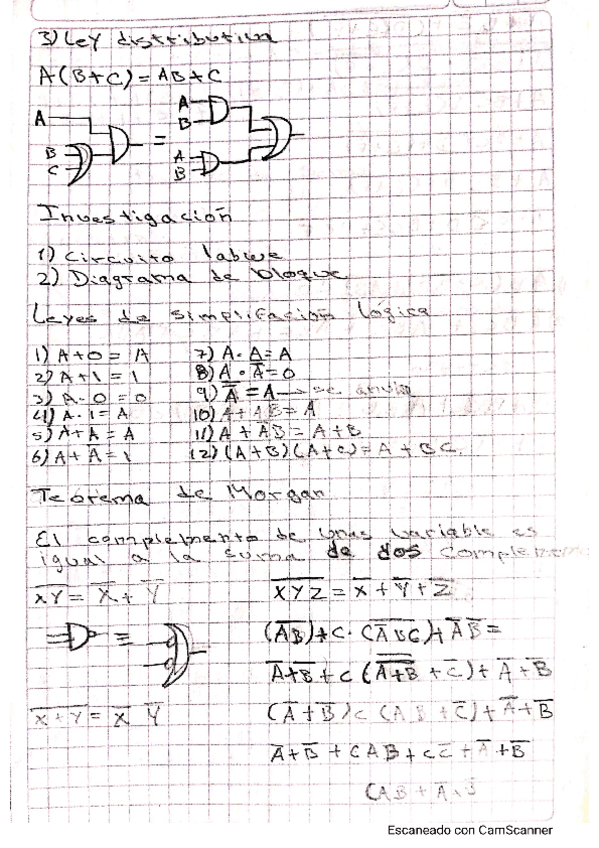 3) Ley distributiva
A(B+C) = AB+C
A
B
C
=
A
B
A
B
Investigación
1) Circuito
2) Diagrama de bloque
Leyes de simplificación lógica
1) A+0 = A
2) A+1 = 1
3) A·0 = 0
4) A·1 = A
5) A+A = A
6) A+A̅ = 1
7) A·A = A
8) A·A̅ = 0
9) A̿ = A → se anula
10) A+AB = A
11) A+A̅B = A+B
12) (A+B)(A+C) = A+BC
Teorema de Morgan
El complemento de unas variable es
igual a la suma de dos
X̅Y̅ = X̅+Y̅
≡
X̅+̅Y̅ = X̅ Y̅
X̅Y̅Z̅ = X̅+Y̅+Z̅
(A̅B̅)+C·(A̅B̅C̅)+A̅B̅ =
A̅+B̅+C(A̿+̿B̿+C̅)+A̅+B̅
(A̅+B̅)C(AB+C̅)+A̅+B̅
A̅+B̅+CAB+CC̅+A̅+B̅
Escaneado con CamScanner